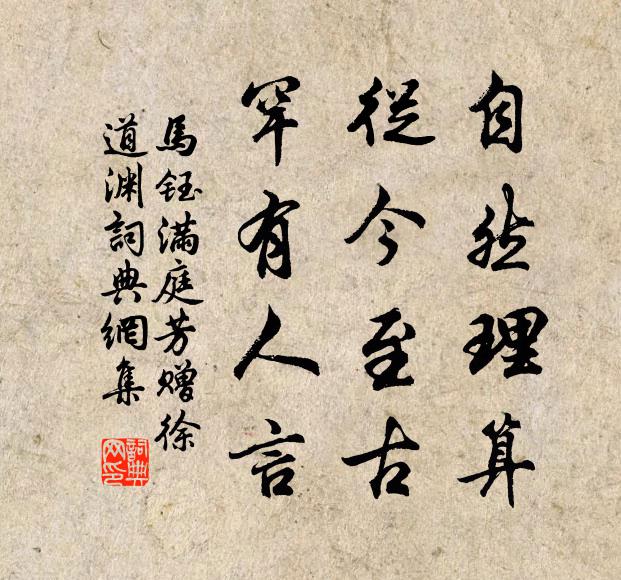 自然理算
從今至古
罕有人言
馬鈺滿庭芳贈徐
道渊詞典網集
詞典
网印